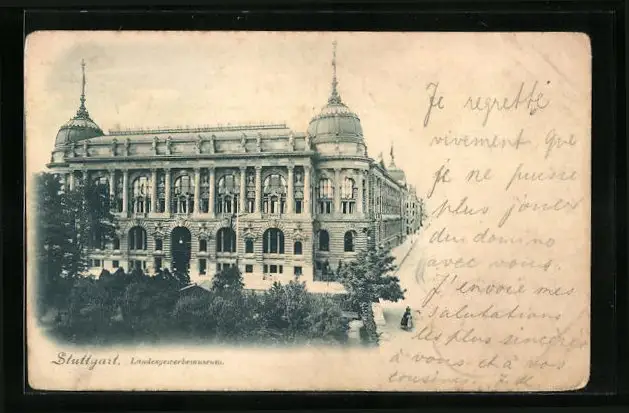 Stuttgart. Landesgewerbemuseum.
Je regrette
vivement que
je ne puisse
plus jouer
du domino
avec vous.
J'envoie mes
salutations
les plus sincères
à vous et à vos
cousins.